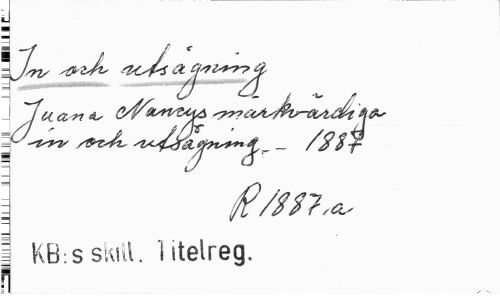 In och utsågning
Juana Nancys märkvärdiga
in och utsågning. – 1887
R 1887.a
KB:s skill. Titelreg.